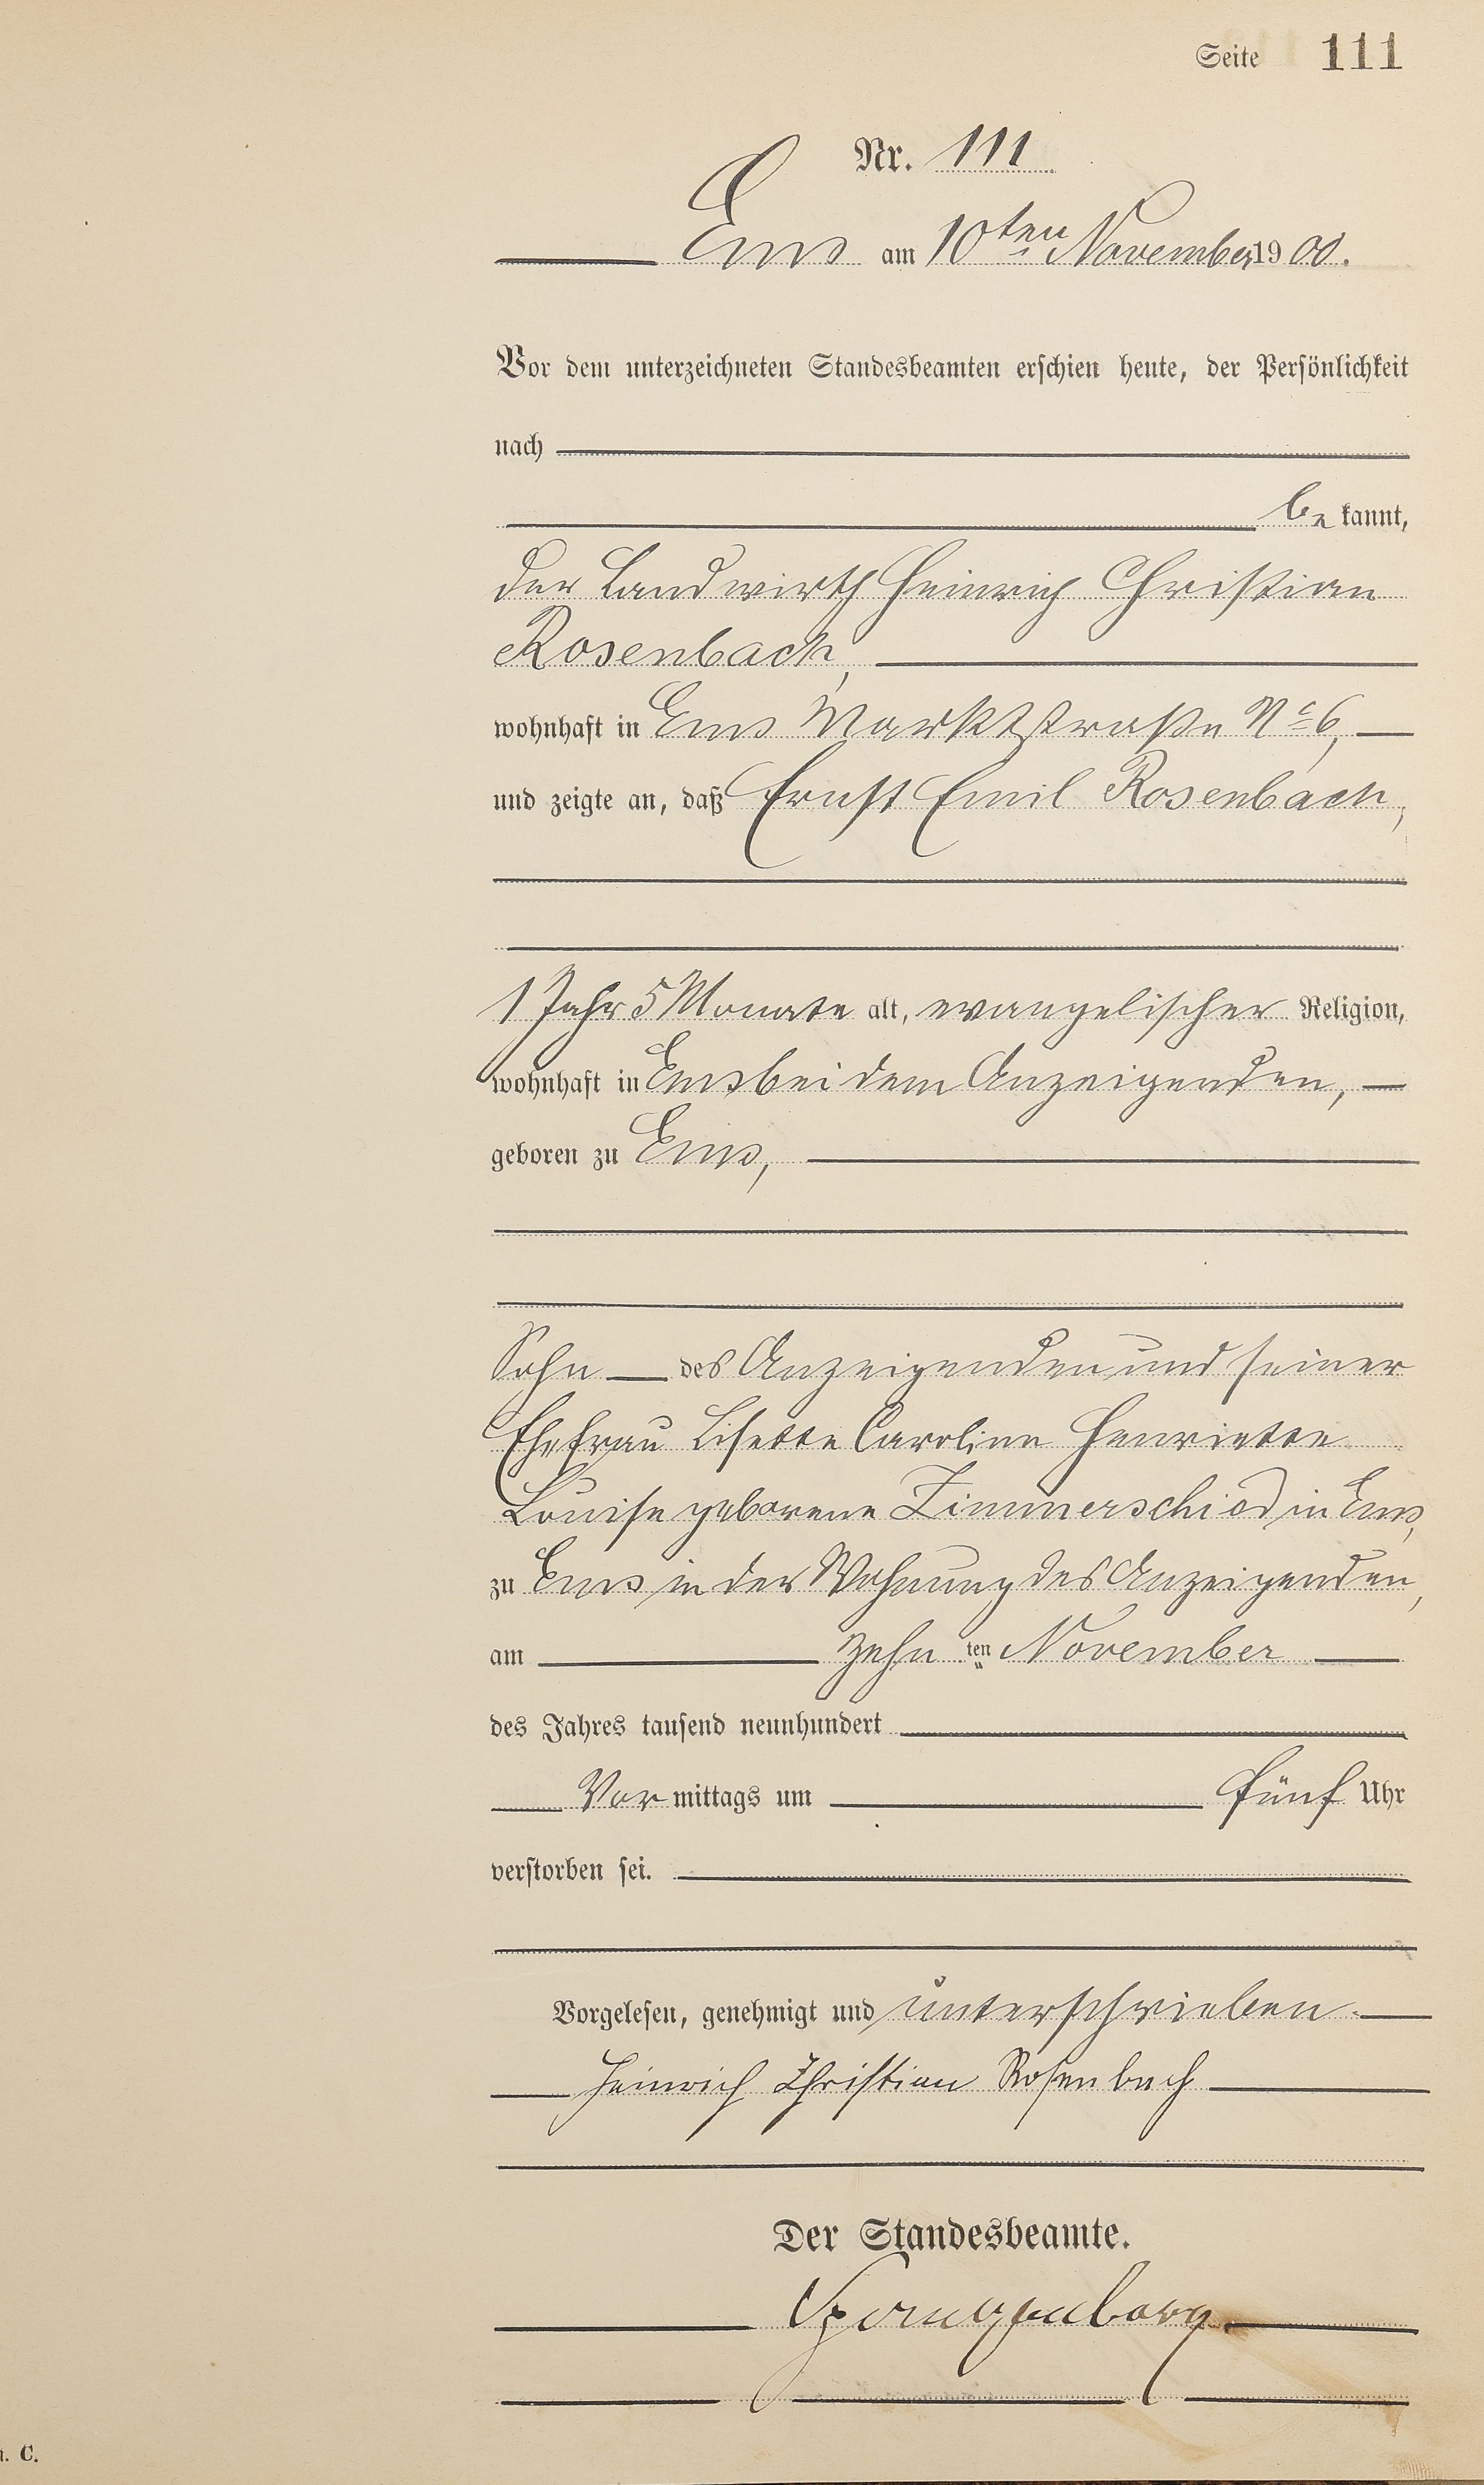 Seite 111
Nr. 111
Ems am 10ten November 1900.
Vor dem unterzeichneten Standesbeamten erschien heute, der Persönlichkeit
nach
be kannt,
der Landwirth Heinrich Christian
Rosenbach,
wohnhaft in Ems Marktstraße No 6,
und zeigte an, daß Ernst Emil Rosenbach,
1 Jahr 5 Monate alt, evangelischer Religion,
wohnhaft in Ems bei dem Anzeigenden,
geboren zu Ems,
Sohn des Anzeigenden und seiner
Ehefrau Lisette Caroline Henriette
Louise geborene Zimmerschied in Ems,
zu Ems in der Wohnung des Anzeigenden,
am zehn ten November
des Jahres tausend neunhundert
Vor mittags um fünf Uhr
verstorben sei.
Vorgelesen, genehmigt und unterschrieben.
Heinrich Christian Rosenbach
Der Standesbeamte.
C.